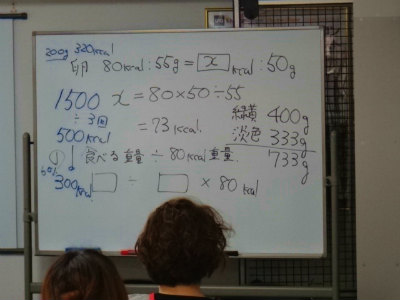 200g 320kcal
卵 80kcal : 55g = x kcal : 50g
1500
÷3回
500kcal
の
60%
300kcal
x = 80×50÷55
= 73kcal.
緑黄 400g
淡色 333g
733g
食べる重量 ÷ 80kcal重量
÷ × 80kcal